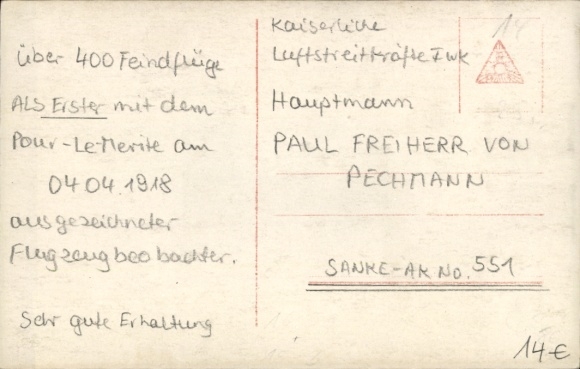 über 400 Feindflüge
ALS Erster mit dem
Pour-LeMerite am
04 04.1918
ausgezeichneter
Flugzeugbeobachter.
Sehr gute Erhaltung
14
Kaiserliche
Luftstreitkräfte I.WK
Hauptmann
PAUL FREIHERR VON
PECHMANN
SANKE-AK NO. 551
14€